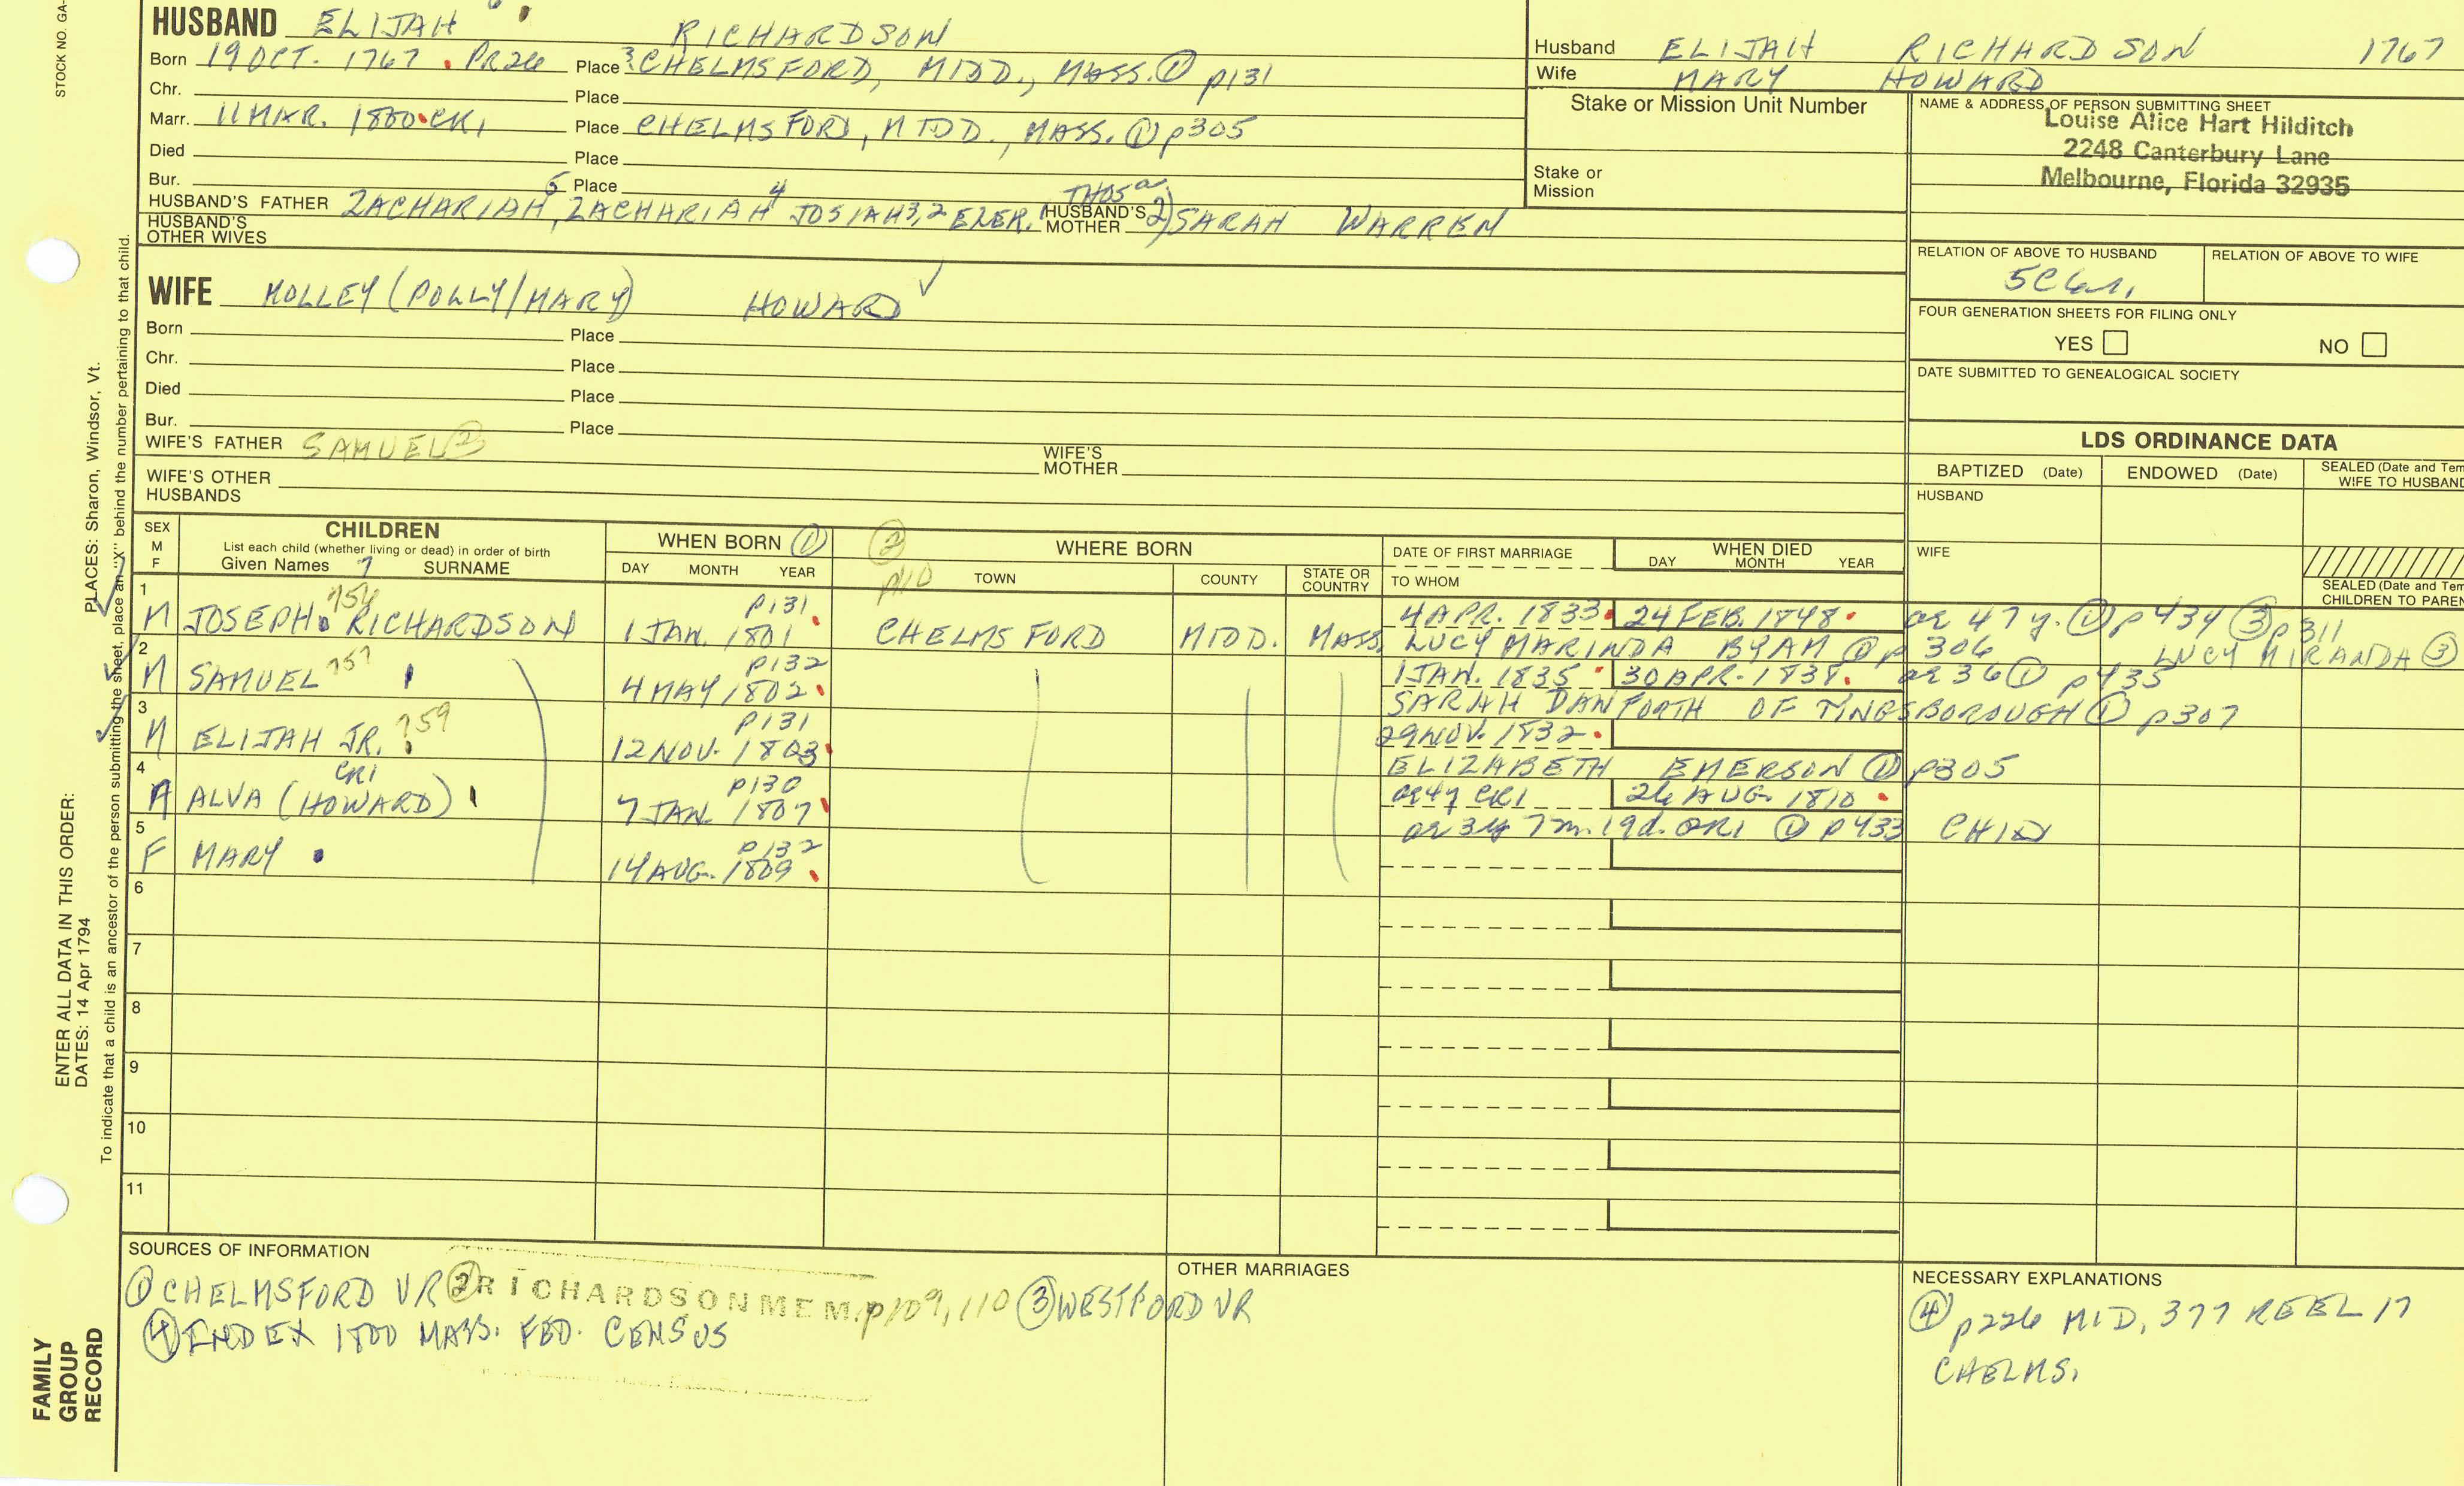 STOCK NO. GA-
HUSBAND ELIJAH RICHARDSON
Born 19 OCT. 1767 . PR26 Place 3 CHELMSFORD, MIDD., MASS. ① p131
Chr. Place
Marr. 11 MAR. 1800 • CR1 Place CHELMSFORD, MIDD., MASS. ① p305
Died Place
Bur. Place
HUSBAND'S FATHER ZACHARIAH 5, ZACHARIAH 4 JOSIAH 3,2 EZER. 1 THOS a HUSBAND'S MOTHER 2) SARAH WARREN
HUSBAND'S OTHER WIVES
Husband ELIJAH RICHARDSON 1767
Wife MARY HOWARD
Stake or Mission Unit Number
Stake or
Mission
NAME & ADDRESS OF PERSON SUBMITTING SHEET
Louise Alice Hart Hilditch
2248 Canterbury Lane
Melbourne, Florida 32935
RELATION OF ABOVE TO HUSBAND
RELATION OF ABOVE TO WIFE
5C6r1
FOUR GENERATION SHEETS FOR FILING ONLY
YES NO
DATE SUBMITTED TO GENEALOGICAL SOCIETY
WIFE MOLLEY (POLLY/MARY) HOWARD ✓
Born Place
Chr. Place
Died Place
Bur. Place
WIFE'S FATHER SAMUEL ② WIFE'S MOTHER
WIFE'S OTHER HUSBANDS
LDS ORDINANCE DATA
BAPTIZED (Date) ENDOWED (Date) SEALED (Date and Tem
WIFE TO HUSBAND
HUSBAND
WIFE
SEALED (Date and Tem
CHILDREN TO PAREN
SEX
M
F
CHILDREN
List each child (whether living or dead) in order of birth
Given Names 7 SURNAME
WHEN BORN ①
DAY MONTH YEAR
② p110
WHERE BORN
TOWN COUNTY STATE OR COUNTRY
DATE OF FIRST MARRIAGE
TO WHOM
WHEN DIED
DAY MONTH YEAR
1 M JOSEPH 756 RICHARDSON p131 1 JAN. 1801 CHELMSFORD MIDD. MASS. 4 APR. 1833 24 FEB. 1848 ae 47 y. ① p434 ③ p311
LUCY MARINDA BYAM ① p 306 LUCY MIRANDA ③
2 M SAMUEL 757 p132 4 MAY 1802 1 JAN. 1835 30 APR. 1838 ae 36 ① p435
SARAH DANFORTH OF TINGSBOROUGH ① p307
3 M ELIJAH JR. 759 p131 12 NOV. 1803 29 NOV. 1832
ELIZABETH EMERSON ① p305
4 M ALVA (HOWARD) CR1 p130 7 JAN. 1807 ae 4y CR1 26 AUG. 1810
ae 3y 7m. 19d. CR1 ① p433 CHILD
5 F MARY p132 14 AUG. 1809
6
7
8
9
10
11
SOURCES OF INFORMATION
① CHELMSFORD VR ② RICHARDSON MEM. p109, 110 ③ WESTFORD VR
④ INDEX 1800 MASS. FED. CENSUS
OTHER MARRIAGES
NECESSARY EXPLANATIONS
④ p226 MID, 377 REEL 17
CHELMS.
FAMILY
GROUP
RECORD
ENTER ALL DATA IN THIS ORDER:
DATES: 14 Apr 1794
PLACES: Sharon, Windsor, Vt.
To indicate that a child is an ancestor of the person submitting the sheet, place an "X" behind the number pertaining to that child.